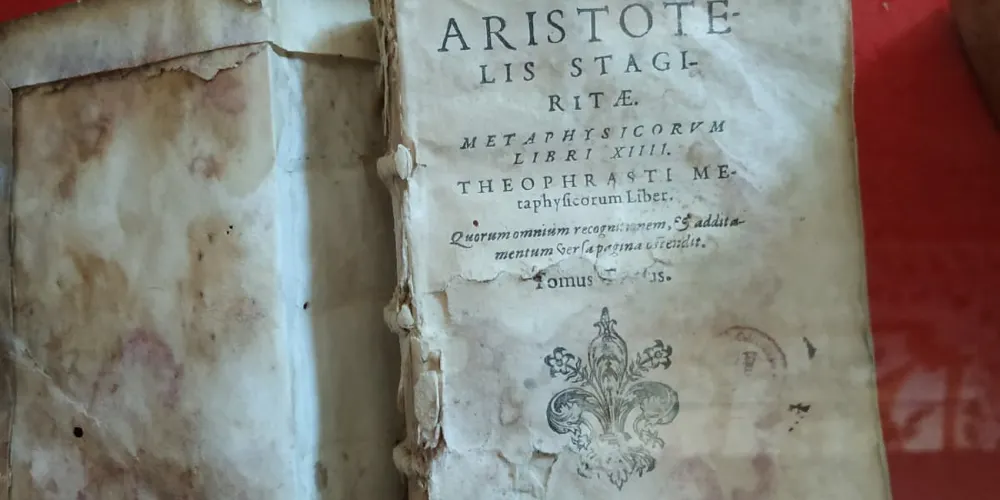 ARISTOTE-
LIS STAGI-
RITÆ.
METAPHYSICORVM
LIBRI XIIII.
THEOPHRASTI ME-
taphyſicorum Liber.
Quorum omnium recognitionem, & addita-
mentum verſa pagina oſtendit.
Tomus